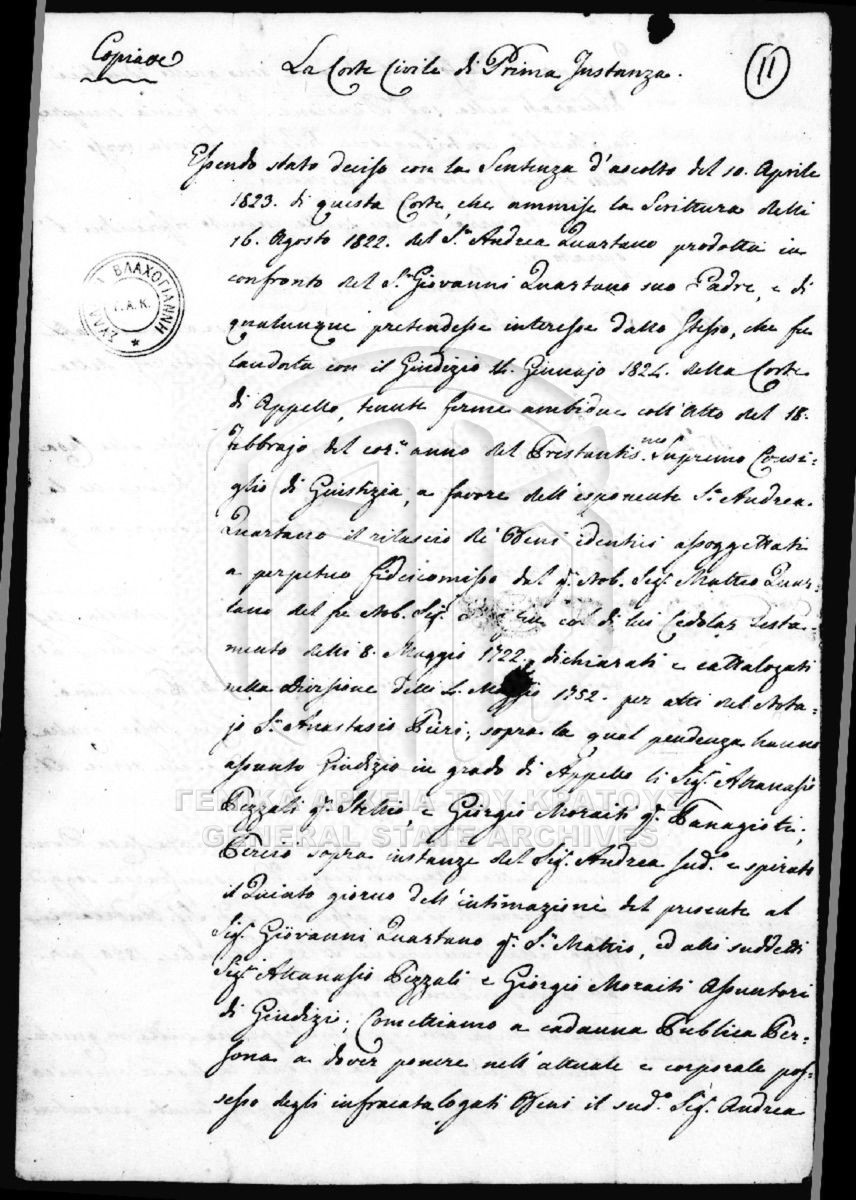 Copia
La Corte Civile di Prima Instanza.
11
Essendo stato deciso con la Sentenza d'ascolto del 10. Aprile
1823. di questa Corte, che ammise la Scrittura delli
16. Agosto 1822. del Sr. Andrea Quartano prodotta in
confronto del Sr. Giovanni Quartano suo Padre, e di
qualunque pretendesse interesse dallo stesso, che fu
laudata con il Giudizio 14. Gennajo 1824. della Corte
di Appello, tenute ferme ambidue coll'Atto del 18.
Febbrajo del corr.e anno del Prestantis.mo Supremo Consi-
glio di Giustizia, a favore dell'esponente Sr. Andrea
Quartano il rilascio de' Beni identici assoggettati
a perpetuo fideicomisso dal q.m Nob. Sig.r Matteo Quar-
tano del fu Nob. Sig.r con di lui Cedolar Testa-
mento delli 8. Maggio 1722, dichiarati e cattalogati
nella Divisione delli 4. Maggio 1752. per atti del Nota-
jo Sr. Anastasio Pieri, sopra la qual pendenza hanno
assunto Giudizio in grado di Appello li Sig.ri Attanasio
Pizzali q.m Stelio, e Giorgio Moraiti q.m Panagioti;
Perciò sopra instanze del Sig.r Andrea sud.o e spirato
il Quinto giorno dell'intimazione del presente al
Sig.r Giovanni Quartano q.m Sr. Mattio, ed alli suddetti
Sig.ri Attanasio Pizzali e Giorgio Moraiti Assuntori
di Giudizi; Comettiamo a cadauna Publica Per-
sona a dover ponere nell'attuale e corporale pos-
sesso degli infracatalogati Beni il sud.o Sig.r Andrea
ΒΛΑΧΟΓΙΑΝΝΗ
Γ.Α.Κ.
ΓΕΝΙΚΑ ΑΡΧΕΙΑ ΤΟΥ ΚΡΑΤΟΥΣ
GENERAL STATE ARCHIVES